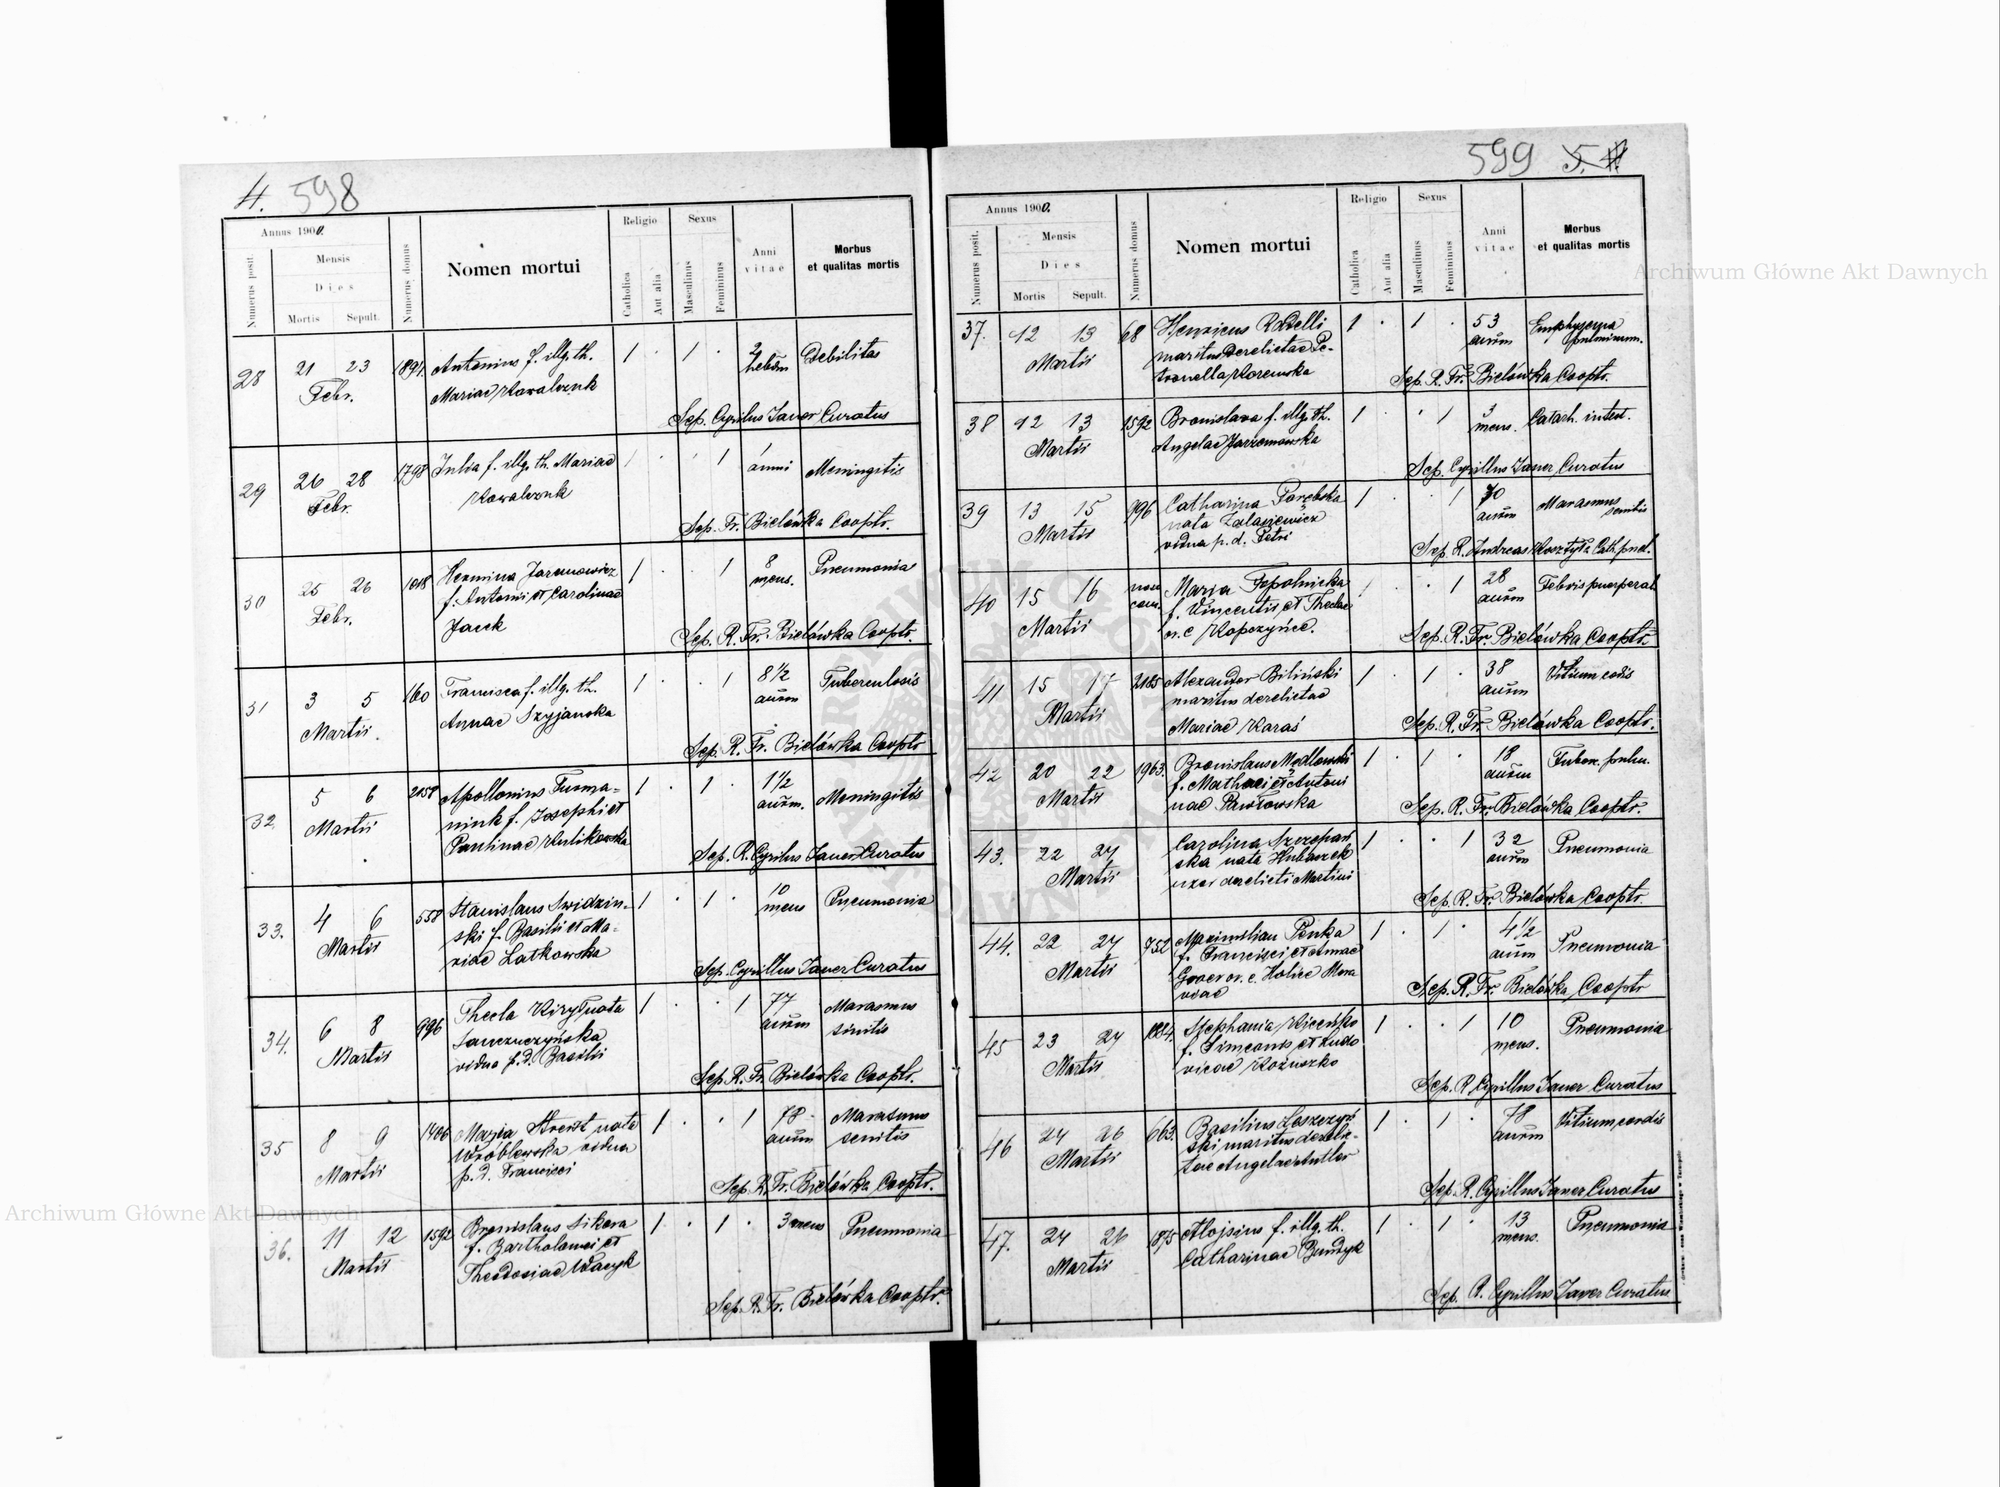 Archiwum Główne Akt Dawnych
4. 598
Annus 1900.
Numerus posit.
Mensis
Dies
Mortis Sepult.
Numerus domus
Nomen mortui
Religio
Catholica
Aut alia
Sexus
Masculinus
Femininus
Anni vitae
Morbus
et qualitas mortis
28 21 23 1891. Antonius f. illg. th. 1 . 1 . 2 Debilitas
Febr. Mariae Kowalczuk hebdm
Sep. Cyrilus Janer Curatus
29 26 28 1798 Julia f. illg. th. Mariae 1 . . 1 Meningitis
Febr. Kowalczuk
Sep. Fr. Bielówka Cooptr.
30 25 26 1018 Hermina Jaremowicz 1 . . 1 8 Pneumonia
Febr. f. Antonii et Carolinae mens.
Jacek
Sep. R. Fr. Bielówka Cooptr.
31 3 5 160 Francisca f. illg. th. 1 . . 1 8 1/2 Tuberculosis
Martii. Annae Szyjanska anñm
Sep. R. Fr. Bielówka Cooptr
32 5 6 2158 Apollonius Furma- 1 . 1 . 1 1/2
Martii niuk f. Josephi et annm. Meningitis
Paulinae Kulikowska
Sep. R. Cyrilus Janer Curatus
33. 4 6 558 Stanislaus Swidzin- 1 . 1 . 10 Pneumonia
Martii ski f. Basilii et Ma- mens
riae Latkowska
Sep. Cyrillus Janer Curatus
34. 6 8 996 Thecla nata 1 . . 1 77 Marasmus
Martii annm senilis
vidua p. d. Basilii
Sep. R. Fr. Bielówka Cooptr.
35 8 9 1406 Maria nata 1 . . 1 78 Marasmus
Martii Wróblewska vidua annm senilis
p. d. Francisci
Sep. R. Fr. Bielówka Cooptr.
36. 11 12 1592 Bronislaus Sikora 1 . 1 . 3 mens Pneumonia
Martii f. Bartholomei et
Theodosiae Wacyk
Sep. R. Fr. Bielówka Cooptr.
599
Annus 1900.
Numerus posit.
Mensis
Dies
Mortis Sepult.
Numerus domus
Nomen mortui
Religio
Catholica
Aut alia
Sexus
Masculinus
Femininus
Anni vitae
Morbus
et qualitas mortis
37. 12 13 68 Henricus 1 . 1 . 53 Emphysema
Martii maritus derelictae Pe- annm pulminum.
tronella
Sep. R. Fr. Bielówka Cooptr.
38 12 13 1592 Bronislava f. illg. th. 1 . 1 3 Catarh. intest.
Martii Angelae Jarzemowska mens.
Sep. Cyrillus Janer Curatus
39 13 15 996 Catharina Porębska 1 . . 1 70 Marasmus
Martii nata Zalasiewicz annm senilis
vidua p. d. Petri
Sep. R. Andreas
40 15 16 Maria 1 . . 1 28 Febris puerperal
Martii f. Vincentii et Theclae annm
or. e Kopczyńce.
Sep. R. Fr. Bielówka Cooptr.
41 15 17 2185 Alexander Biliński 1 . 1 . 38 Vitium cordis
Martii maritus derelictae annm
Mariae Karaś
Sep. R. Fr. Bielówka Cooptr.
42 20 22 1963. Bronislaus Mędlowski 1 . 1 . 18 Tuber. pulm.
Martii f. Mathaei et Antoni annm
nae Pawłowska
Sep. R. Fr. Bielówka Cooptr.
43. 22 24 Carolina Szczepań 1 . . 1 32 Pneumonia
Martii ska nata annm
uxor derelicti Martini
Sep. R. Fr. Bielówka Cooptr.
44. 22 24 752 Maximilian Penka 1 . 1 . 4 1/2 Pneumonia
Martii f. Francisci et Annae annm
or. e. Holice Mora
viae
Sep. R. Fr. Bielówka Cooptr
45 23 24 1884. Stephania 1 . . 1 10 Pneumonia
Martii f. Simeonis et Ludo mens.
vicae Kożuszko
Sep. R. Cyrillus Janer Curatus
46 24 26 663. Basilius Leszczyń 1 . 1 . 48 Vitium cordis
Martii ski maritus derelic- annm
tae Angelae
Sep. R. Cyrillus Janer Curatus
47. 24 26 1875 Alojsius f. illg. th. 1 . 1 . 13 Pneumonia
Martii Catharinae Bundyk mens.
Sep. R. Cyrillus Janer Curatus
Archiwum Główne Akt Dawnych